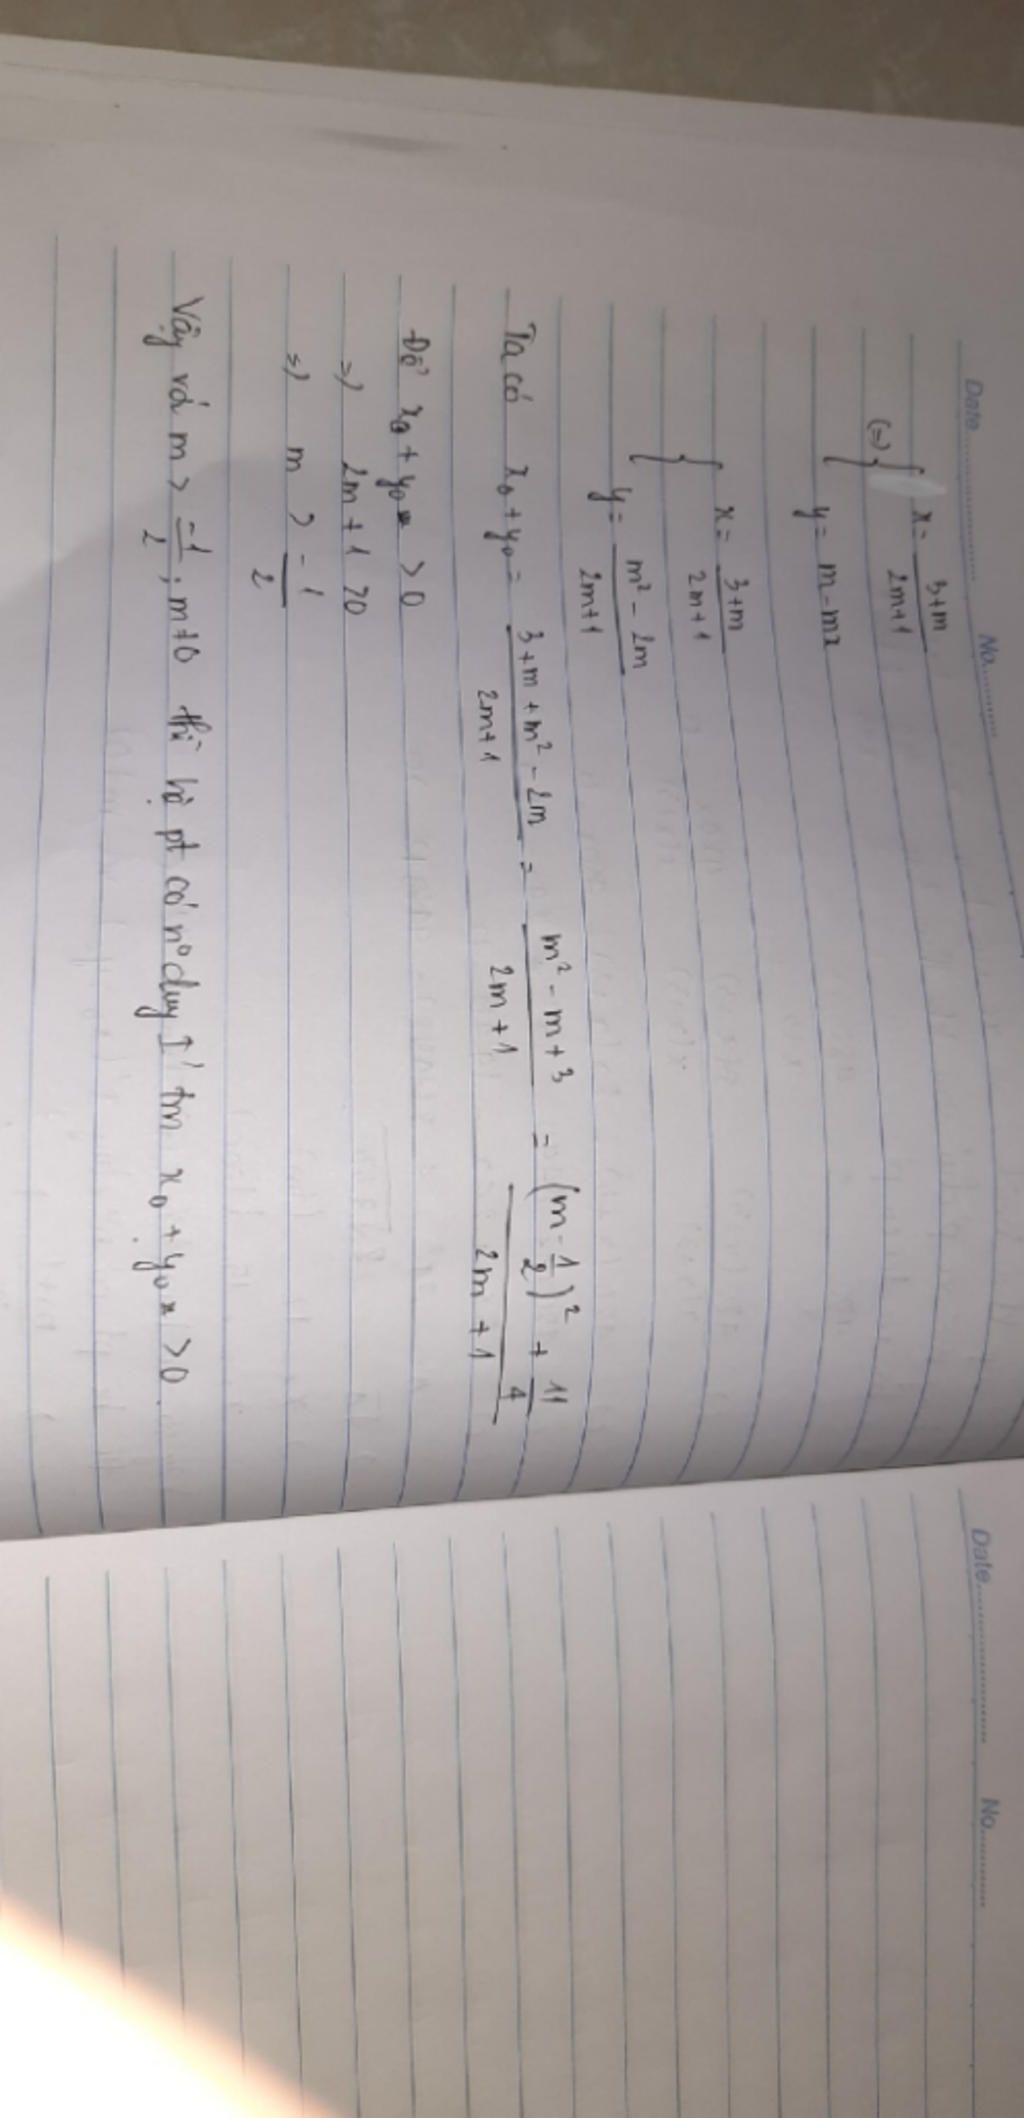 Date............ No............
x = 3+m / 2m+1
(=) {
y = m - mx
{ x = 3+m / 2m+1
{ y = m² - 2m / 2m+1
Ta có x₀ + y₀ = 3+m+m²-2m / 2m+1 = m² - m + 3 / 2m+1 = (m - 1/2)² + 11/4 / 2m+1
Để x₀ + y₀ > 0
=) 2m + 1 > 0
=) m > -1/2
Vậy với m > -1/2 ; m ≠ 0 thì hệ pt có n⁰ duy I' tm x₀ + y₀ > 0
Date............ No............